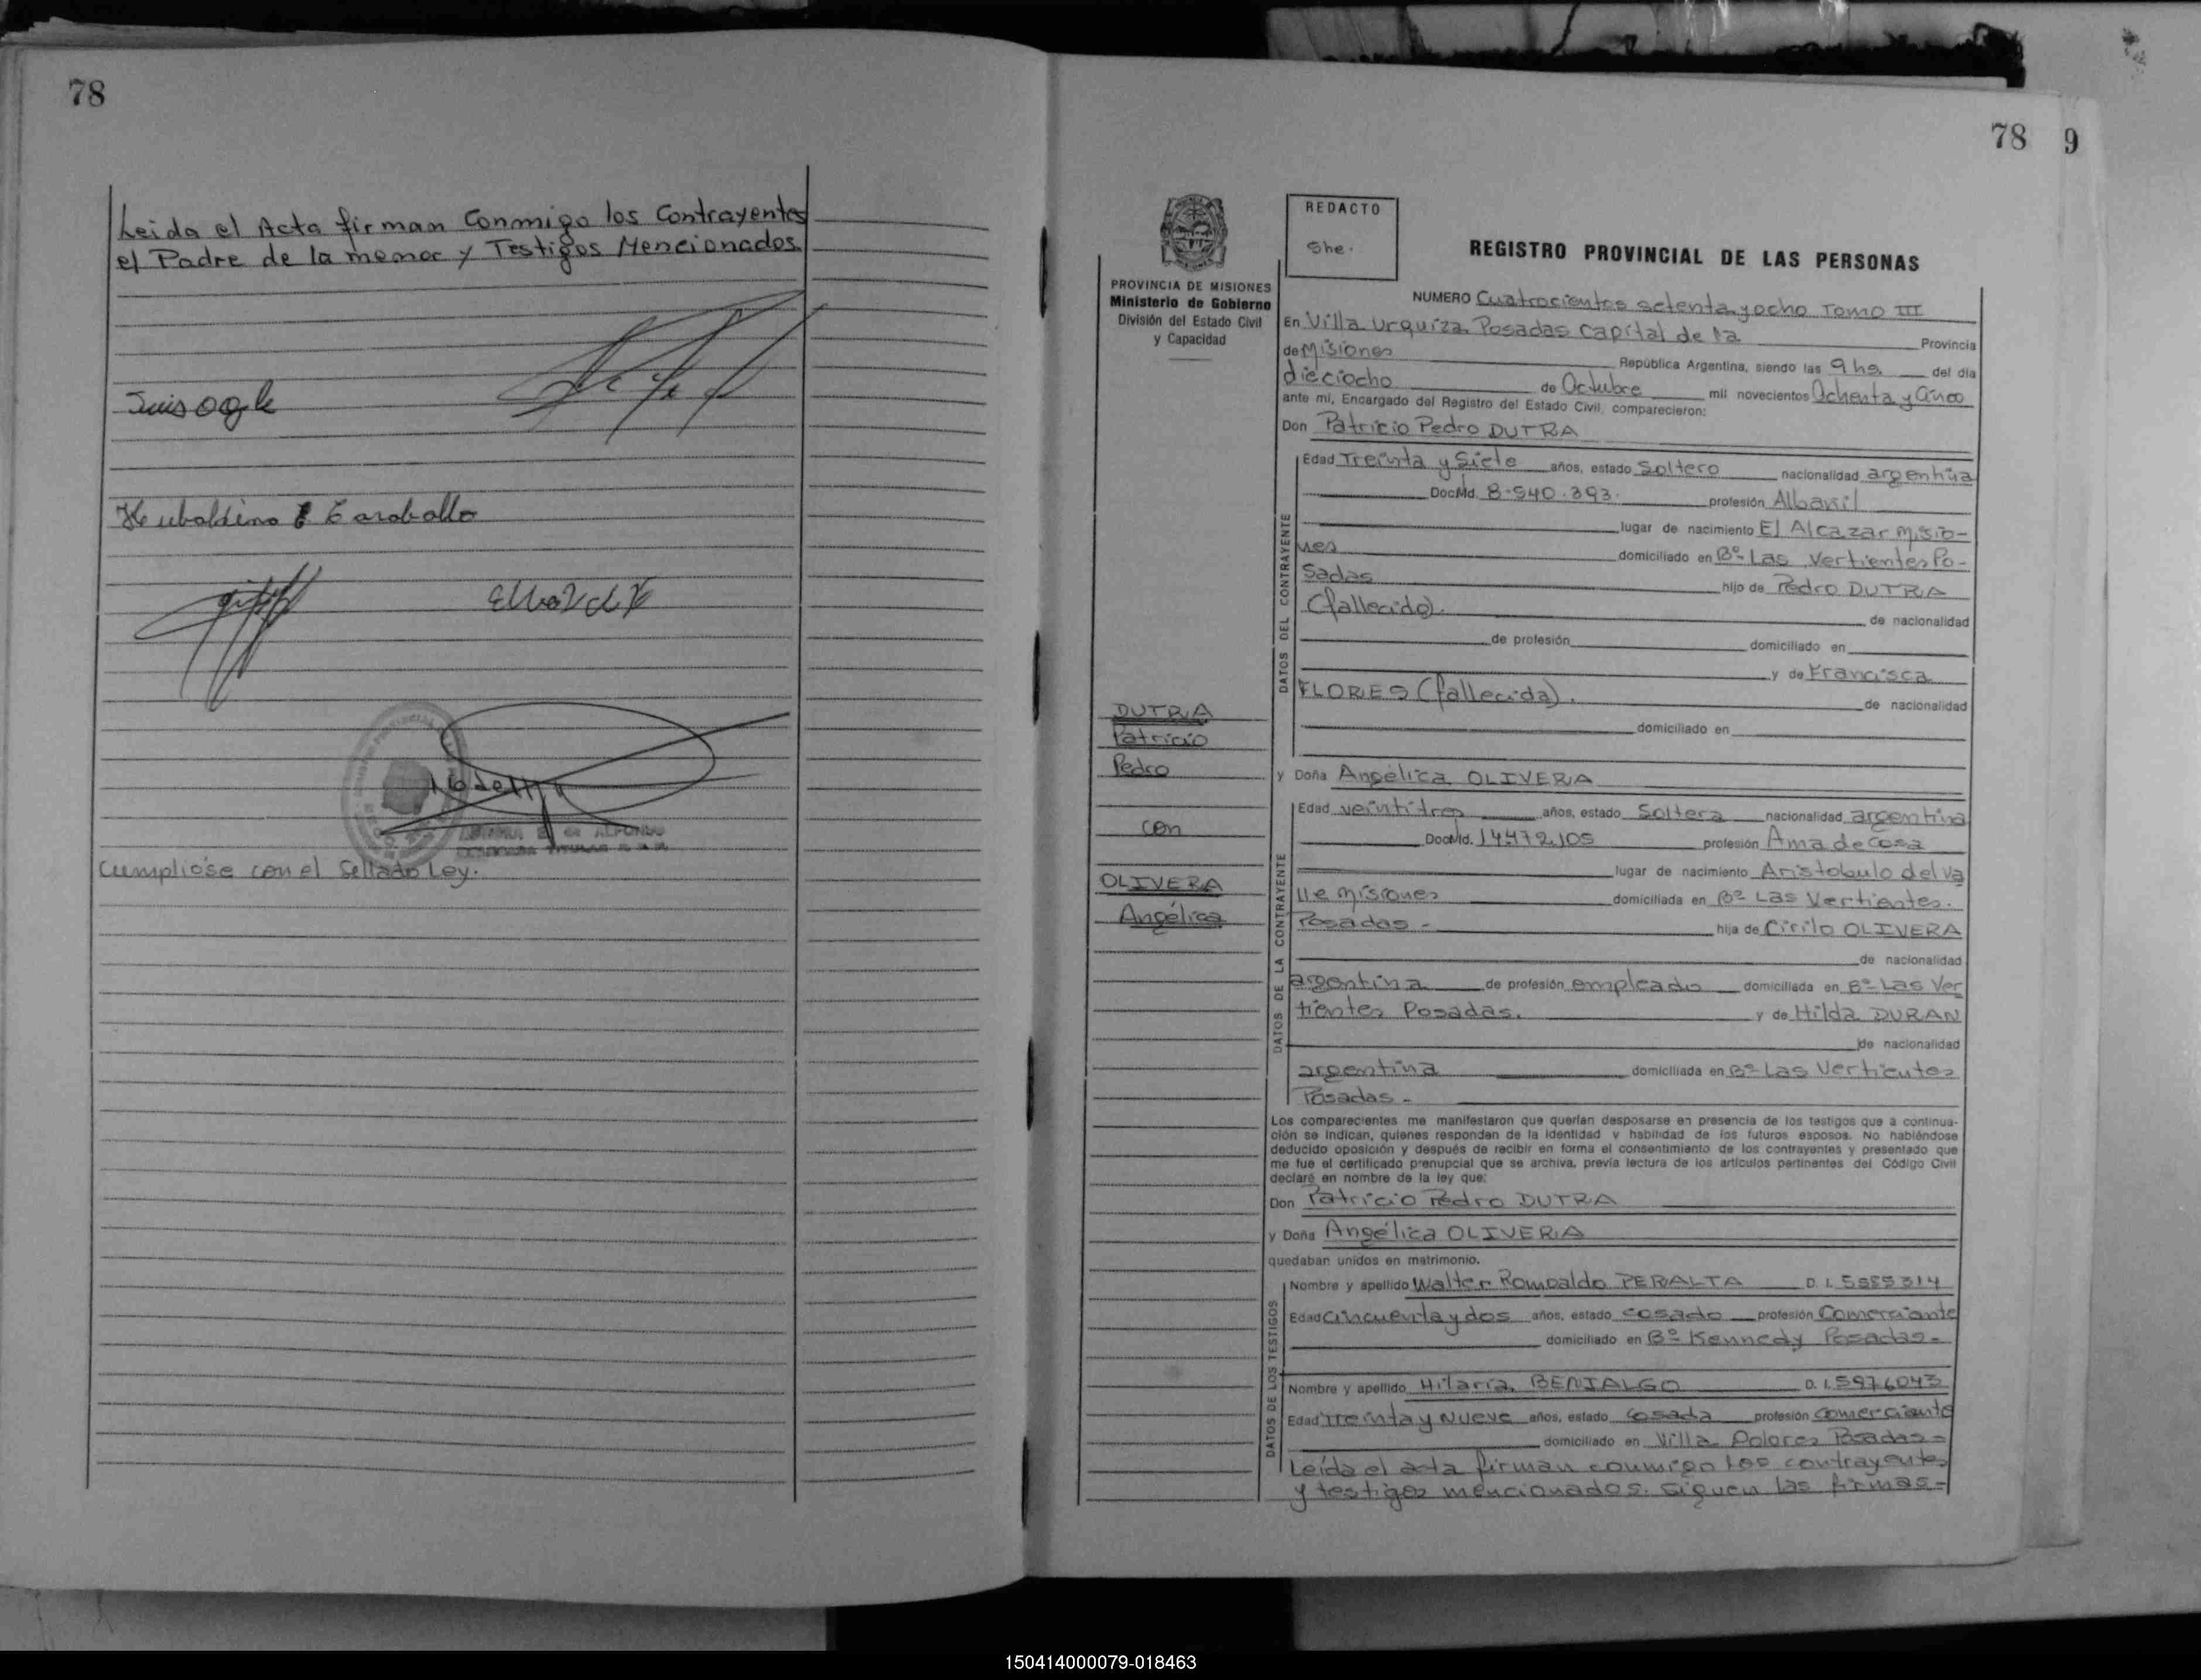 78
Leida el Acta firman Conmigo los Contrayentes
el Padre de la menor y Testigos Mencionados
Cumplióse con el Sellado Ley.
78 9
REDACTO
She.
PROVINCIA DE MISIONES
Ministerio de Gobierno
División del Estado Civil
y Capacidad
REGISTRO PROVINCIAL DE LAS PERSONAS
NUMERO Cuatrocientos setenta y ocho Tomo III
En Villa Urquiza Posadas Capital de la Provincia
de Misiones República Argentina, siendo las 9 hs del día
dieciocho de Octubre mil novecientos Ochenta y Cinco
ante mí, Encargado del Registro del Estado Civil, comparecieron:
Don Patricio Pedro DUTRA
DATOS DEL CONTRAYENTE
Edad Treinta y Siete años, estado Soltero nacionalidad argentina
Doc Nd. 8.540.393. profesión Albañil
lugar de nacimiento El Alcazar Misio-
nes domiciliado en Bº Las Vertientes Po-
sadas hijo de Pedro DUTRA
(fallecido). de nacionalidad
de profesión domiciliado en
y de Francisca
FLORES (fallecida). de nacionalidad
domiciliado en
DUTRA
Patricio
Pedro
con
OLIVERA
Angélica
y Doña Angélica OLIVERA
DATOS DE LA CONTRAYENTE
Edad veintitres años, estado Soltera nacionalidad argentina
Doc Nd. 14.472.105 profesión Ama de Casa
lugar de nacimiento Aristobulo del Va
lle Misiones domiciliada en Bº Las Vertientes.
Posadas - hija de Cirilo OLIVERA
de nacionalidad
argentina de profesión empleado domiciliada en Bº Las Ver
tientes Posadas. y de Hilda DURAN
de nacionalidad
argentina domiciliada en Bº Las Vertientes
Posadas -
Los comparecientes me manifestaron que querían desposarse en presencia de los testigos que a continua-
ción se indican, quienes responden de la identidad y habilidad de los futuros esposos. No habiéndose
deducido oposición y después de recibir en forma el consentimiento de los contrayentes y presentado que
me fue el certificado prenupcial que se archiva, previa lectura de los artículos pertinentes del Código Civil
declaré en nombre de la ley que:
Don Patricio Pedro DUTRA
y Doña Angélica OLIVERA
quedaban unidos en matrimonio.
DATOS DE LOS TESTIGOS
Nombre y apellido Walter Romualdo PERALTA D. I. 5585314
Edad Cincuenta y dos años, estado casado profesión Comerciante
domiciliado en Bº Kennedy Posadas-
Nombre y apellido Hilaria BENIALGO D. I. 5976043
Edad Treinta y Nueve años, estado casada profesión Comerciante
domiciliado en Villa Dolores Posadas-
Leida el acta firman conmigo los contrayentes
y testigos mencionados. siguen las firmas-
150414000079-018463